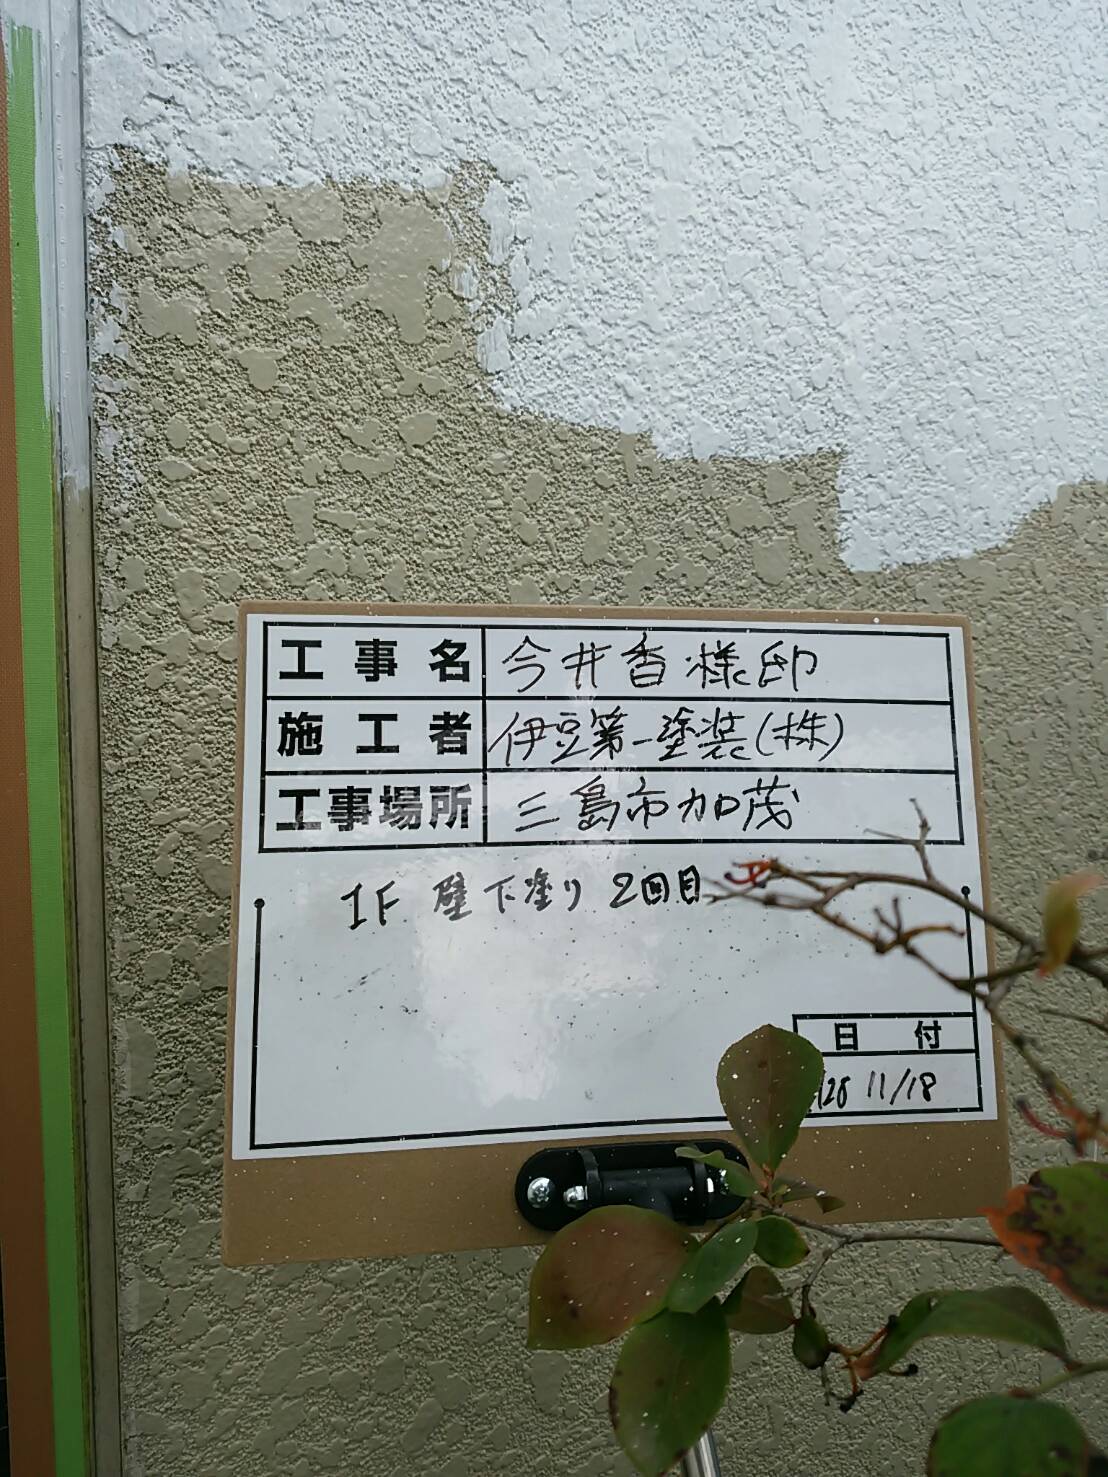 工事名 今井香様邸
施工者 伊豆第一塗装(株)
工事場所 三島市加茂
1F 壁下塗り 2回目
日付
11/18